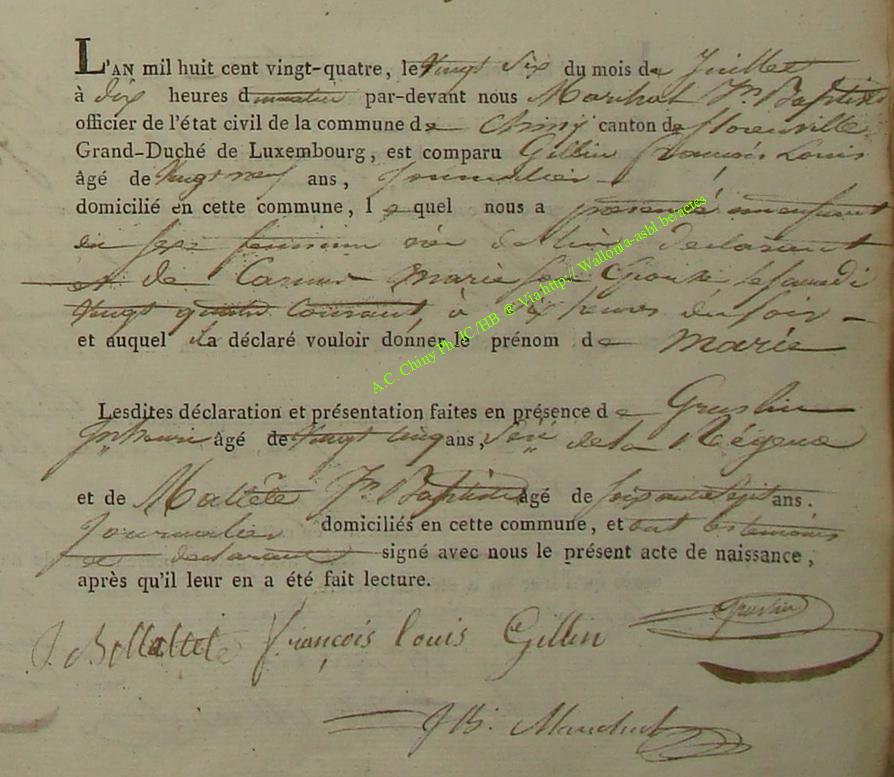 L'AN mil huit cent vingt-quatre, le vingt six du mois de Juillet
à dix heures du matin par-devant nous Marchot Jn Baptiste
officier de l'état civil de la commune de Chiny canton de florenville
Grand-Duché de Luxembourg, est comparu Gillin françois Louis
âgé de vingt neuf ans, Journalier
domicilié en cette commune, le quel nous a présenté un enfant
du sexe feminin née de lui déclarant
et de Marie Son Epouse le samedi
vingt quatre Courant, à heures du soir
et auquel il a déclaré vouloir donner le prénom de Marie
Lesdites déclaration et présentation faites en présence de Graslin
Jn henri âgé de vingt cinq ans, de la Régence
et de Jn Baptiste âgé de soixante sept ans.
Journalier domiciliés en cette commune, et ont les temoins
et declarant signé avec nous le présent acte de naissance,
après qu'il leur en a été fait lecture.
françois louis Gillin
Graslin
J B. Marchot
A.C. Chiny Ph.JC/HB @ Via http:// Wallonia-asbl.be/actes